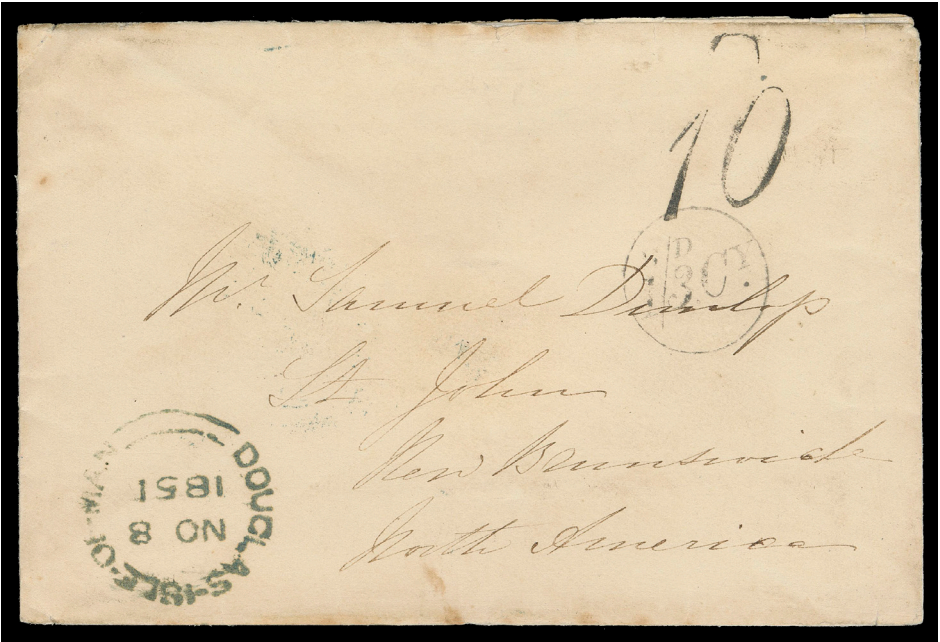 10
D
3 CY.
Mr. Samuel Dunlop
St. John
New Brunswick
North America
DOUGLAS-ISLE-OF-MAN
NO 8
1851